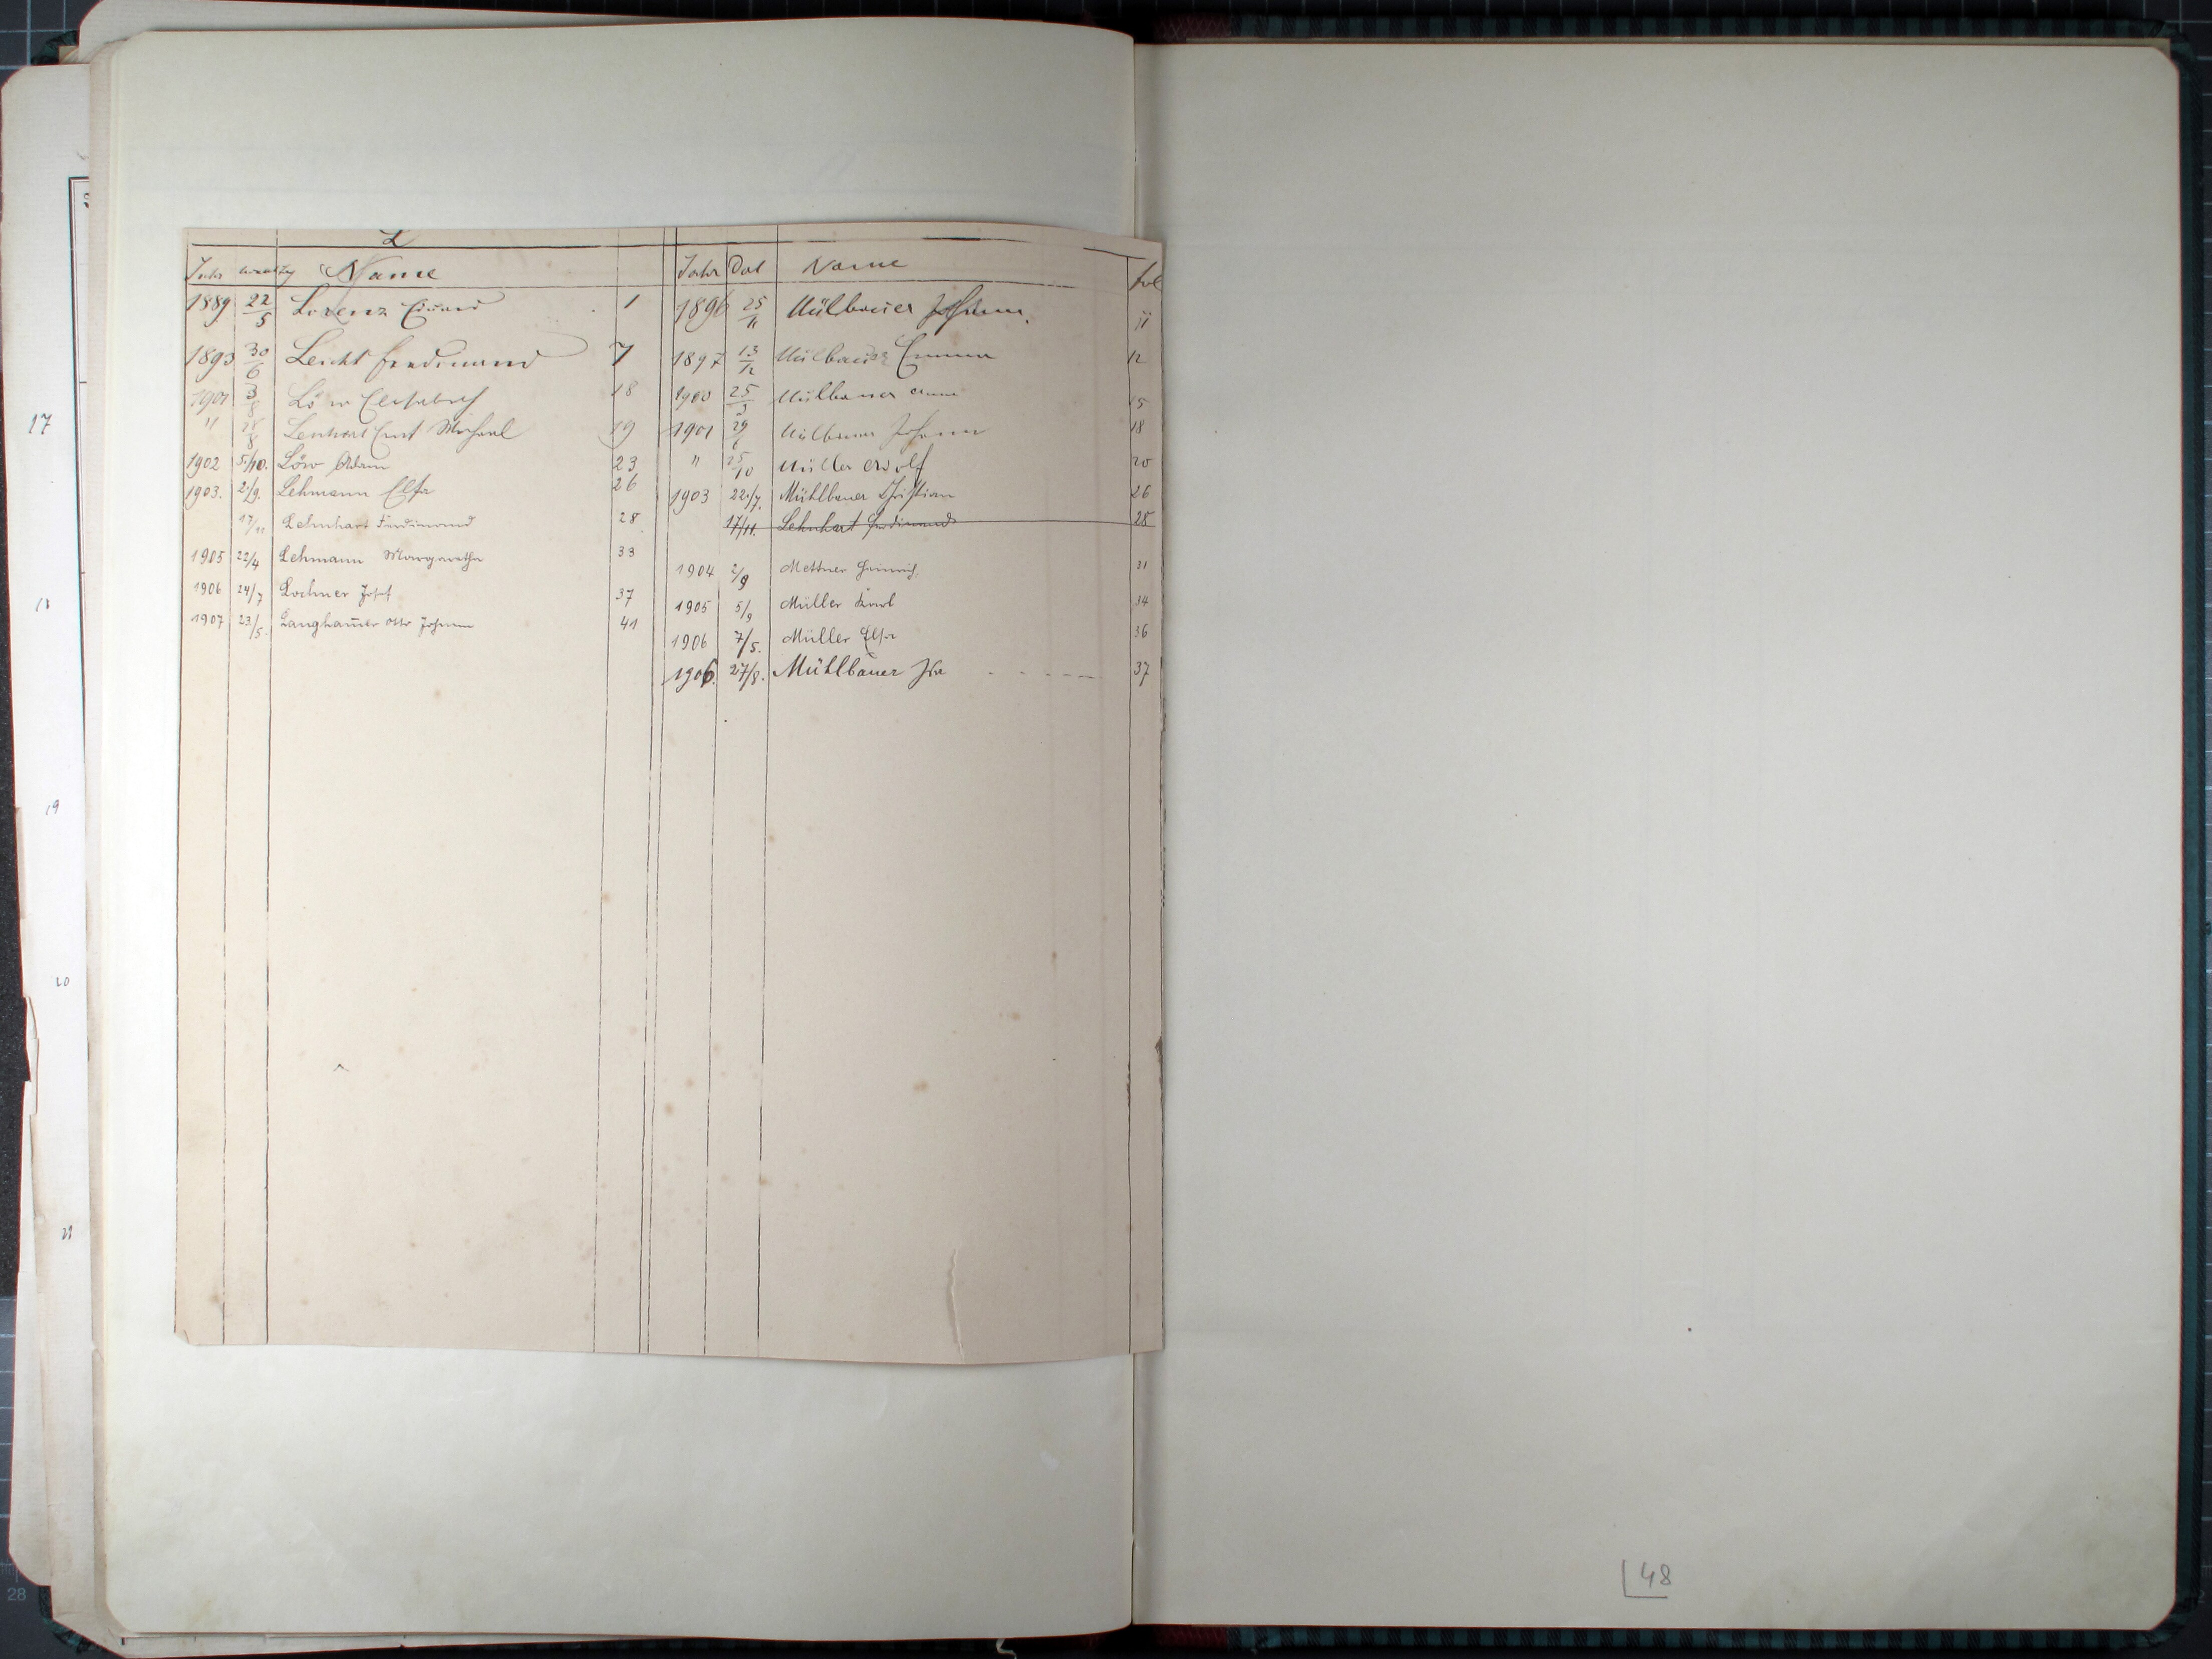 L
Jahr Name
1889 22/5 Lorenz Eduard 1
1893 30/6 Leicht Ferdinand 7
1901 3/8 Löw Elisabeth 18
" 28/8 Lenhart Ernst Michael 19
1902 5./10. Löw Adam 23
1903. 2./9. Lehmann Elsa 26
17/11 Lehnhart Ferdinand 28
1905 22/4 Lehmann Margaretha 33
1906 24/7 Lochner Josef 37
1907 23./5. Langhauer Otto Johann 41
Jahr Dat Name fol
1896 25/11 Mülbauer Johann. 11
1897 13/12 Mülbauer Emma 12
1900 25/3 Mülbauer Anna 15
1901 29/6 Mülbauer Johann 18
" 25/10 Müller Adolf 20
1903 22./7. Mühlbauer Christian 26
17/11. Lehnhart Ferdinand 28
1904 2/9 Mettner Heinrich. 31
1905 5/9 Müller Karl 34
1906 7/5. Müller Elsa 36
1906. 27/8. Mühlbauer Ida 37
17
18
19
20
21
48
28